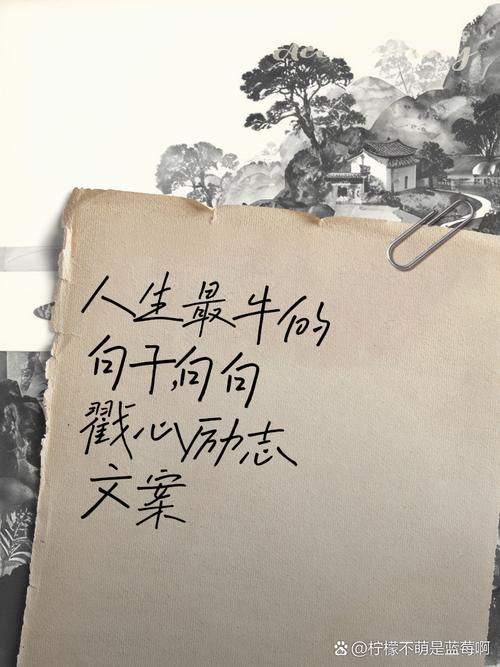 人生最牛的
句子,句句
戳心励志
文案
@柠檬不萌是蓝莓啊